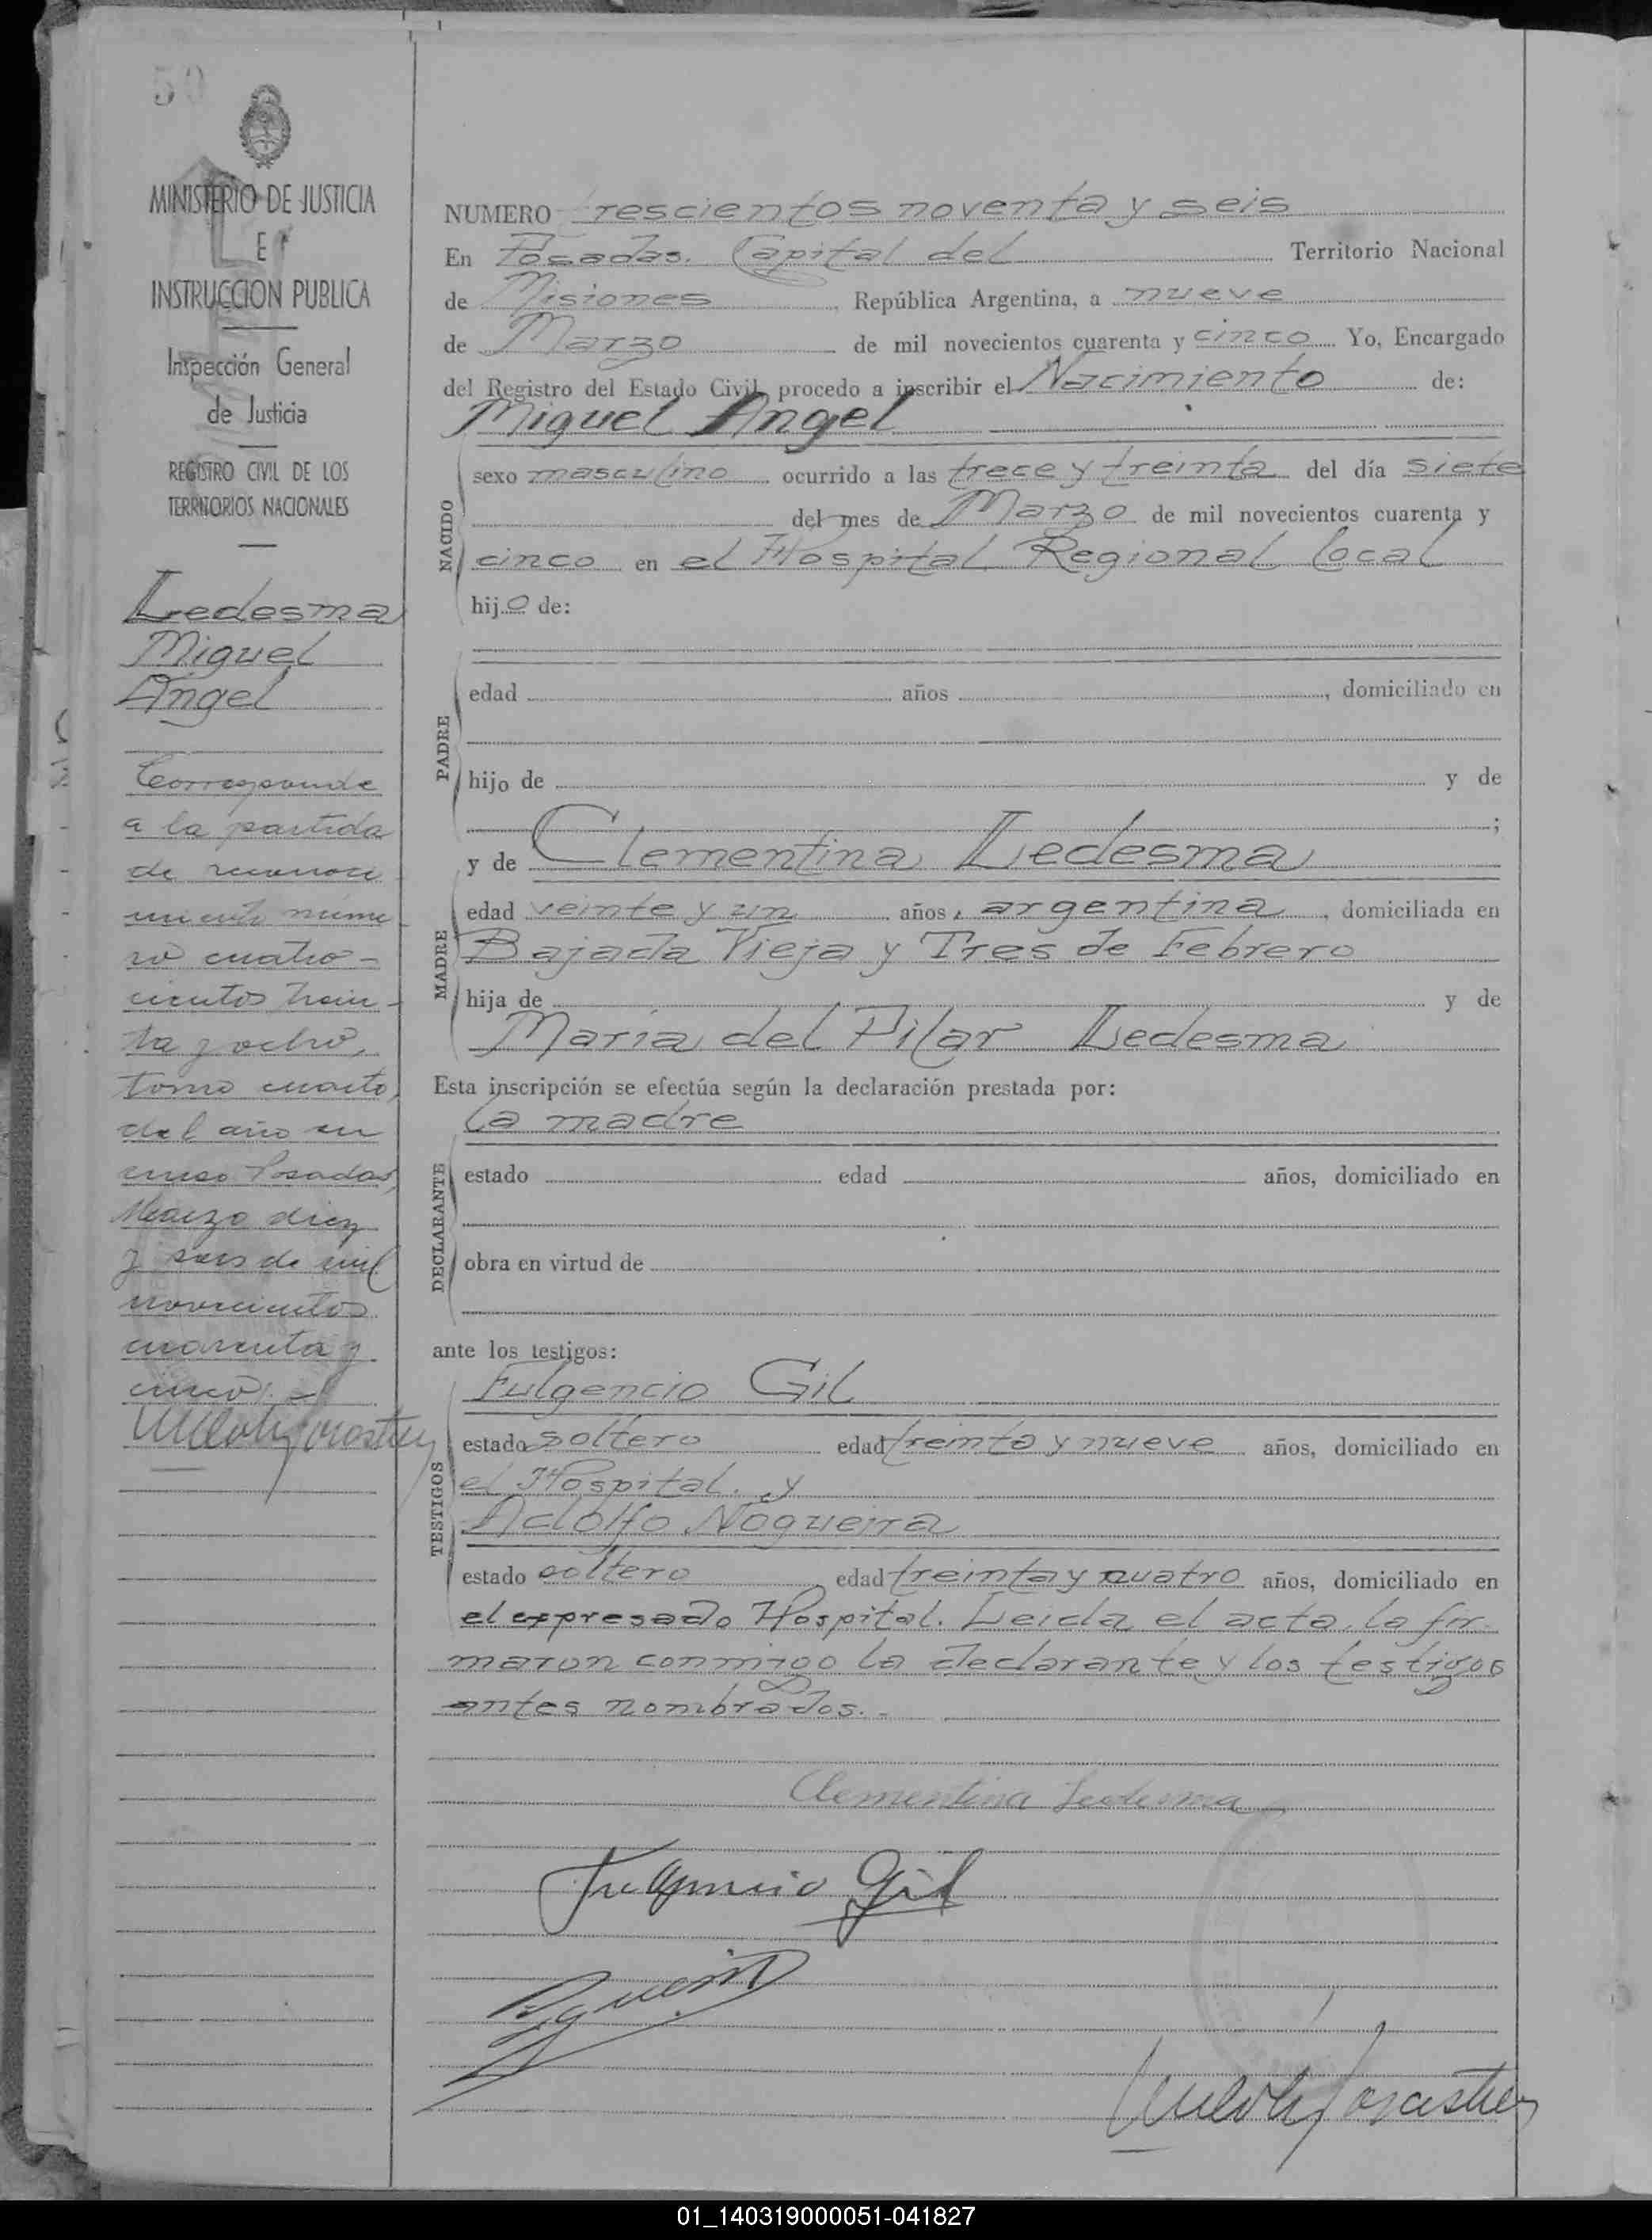 50
MINISTERIO DE JUSTICIA
E
INSTRUCCION PUBLICA
Inspección General
de Justicia
REGISTRO CIVIL DE LOS
TERRITORIOS NACIONALES
Ledesma
Miguel
Angel
Corresponde
a la partida
de reconoci
miento núme
ro cuatro-
cientos trein-
ta y ocho,
tomo cuarto,
del año en
curso Posadas,
Marzo diez
y seis de mil
novecientos
cuarenta y
cinco.-
NUMERO Trescientos noventa y seis
En Posadas. Capital del Territorio Nacional
de Misiones República Argentina, a nueve
de Marzo de mil novecientos cuarenta y cinco Yo, Encargado
del Registro del Estado Civil, procedo a inscribir el Nacimiento de:
Miguel Angel
NACIDO
sexo masculino ocurrido a las trece y treinta del día siete
del mes de Marzo de mil novecientos cuarenta y
cinco en el Hospital Regional local
hijo de:
PADRE
edad años , domiciliado en
hijo de y de
;
MADRE
y de Clementina Ledesma
edad veinte y un años, argentina, domiciliada en
Bajada Vieja y Tres de Febrero
hija de y de
María del Pilar Ledesma
Esta inscripción se efectúa según la declaración prestada por:
la madre
DECLARANTE
estado edad años, domiciliado en
obra en virtud de
ante los testigos:
TESTIGOS
Fulgencio Gil
estado soltero edad treinta y nueve años, domiciliado en
el Hospital. y
Adolfo Nogueira
estado soltero edad treinta y cuatro años, domiciliado en
el expresado Hospital. Leida el acta, la fir-
maron conmigo la declarante y los testigos
antes nombrados.-
Clementina Ledesma
Fulgencio Gil
01_140319000051-041827